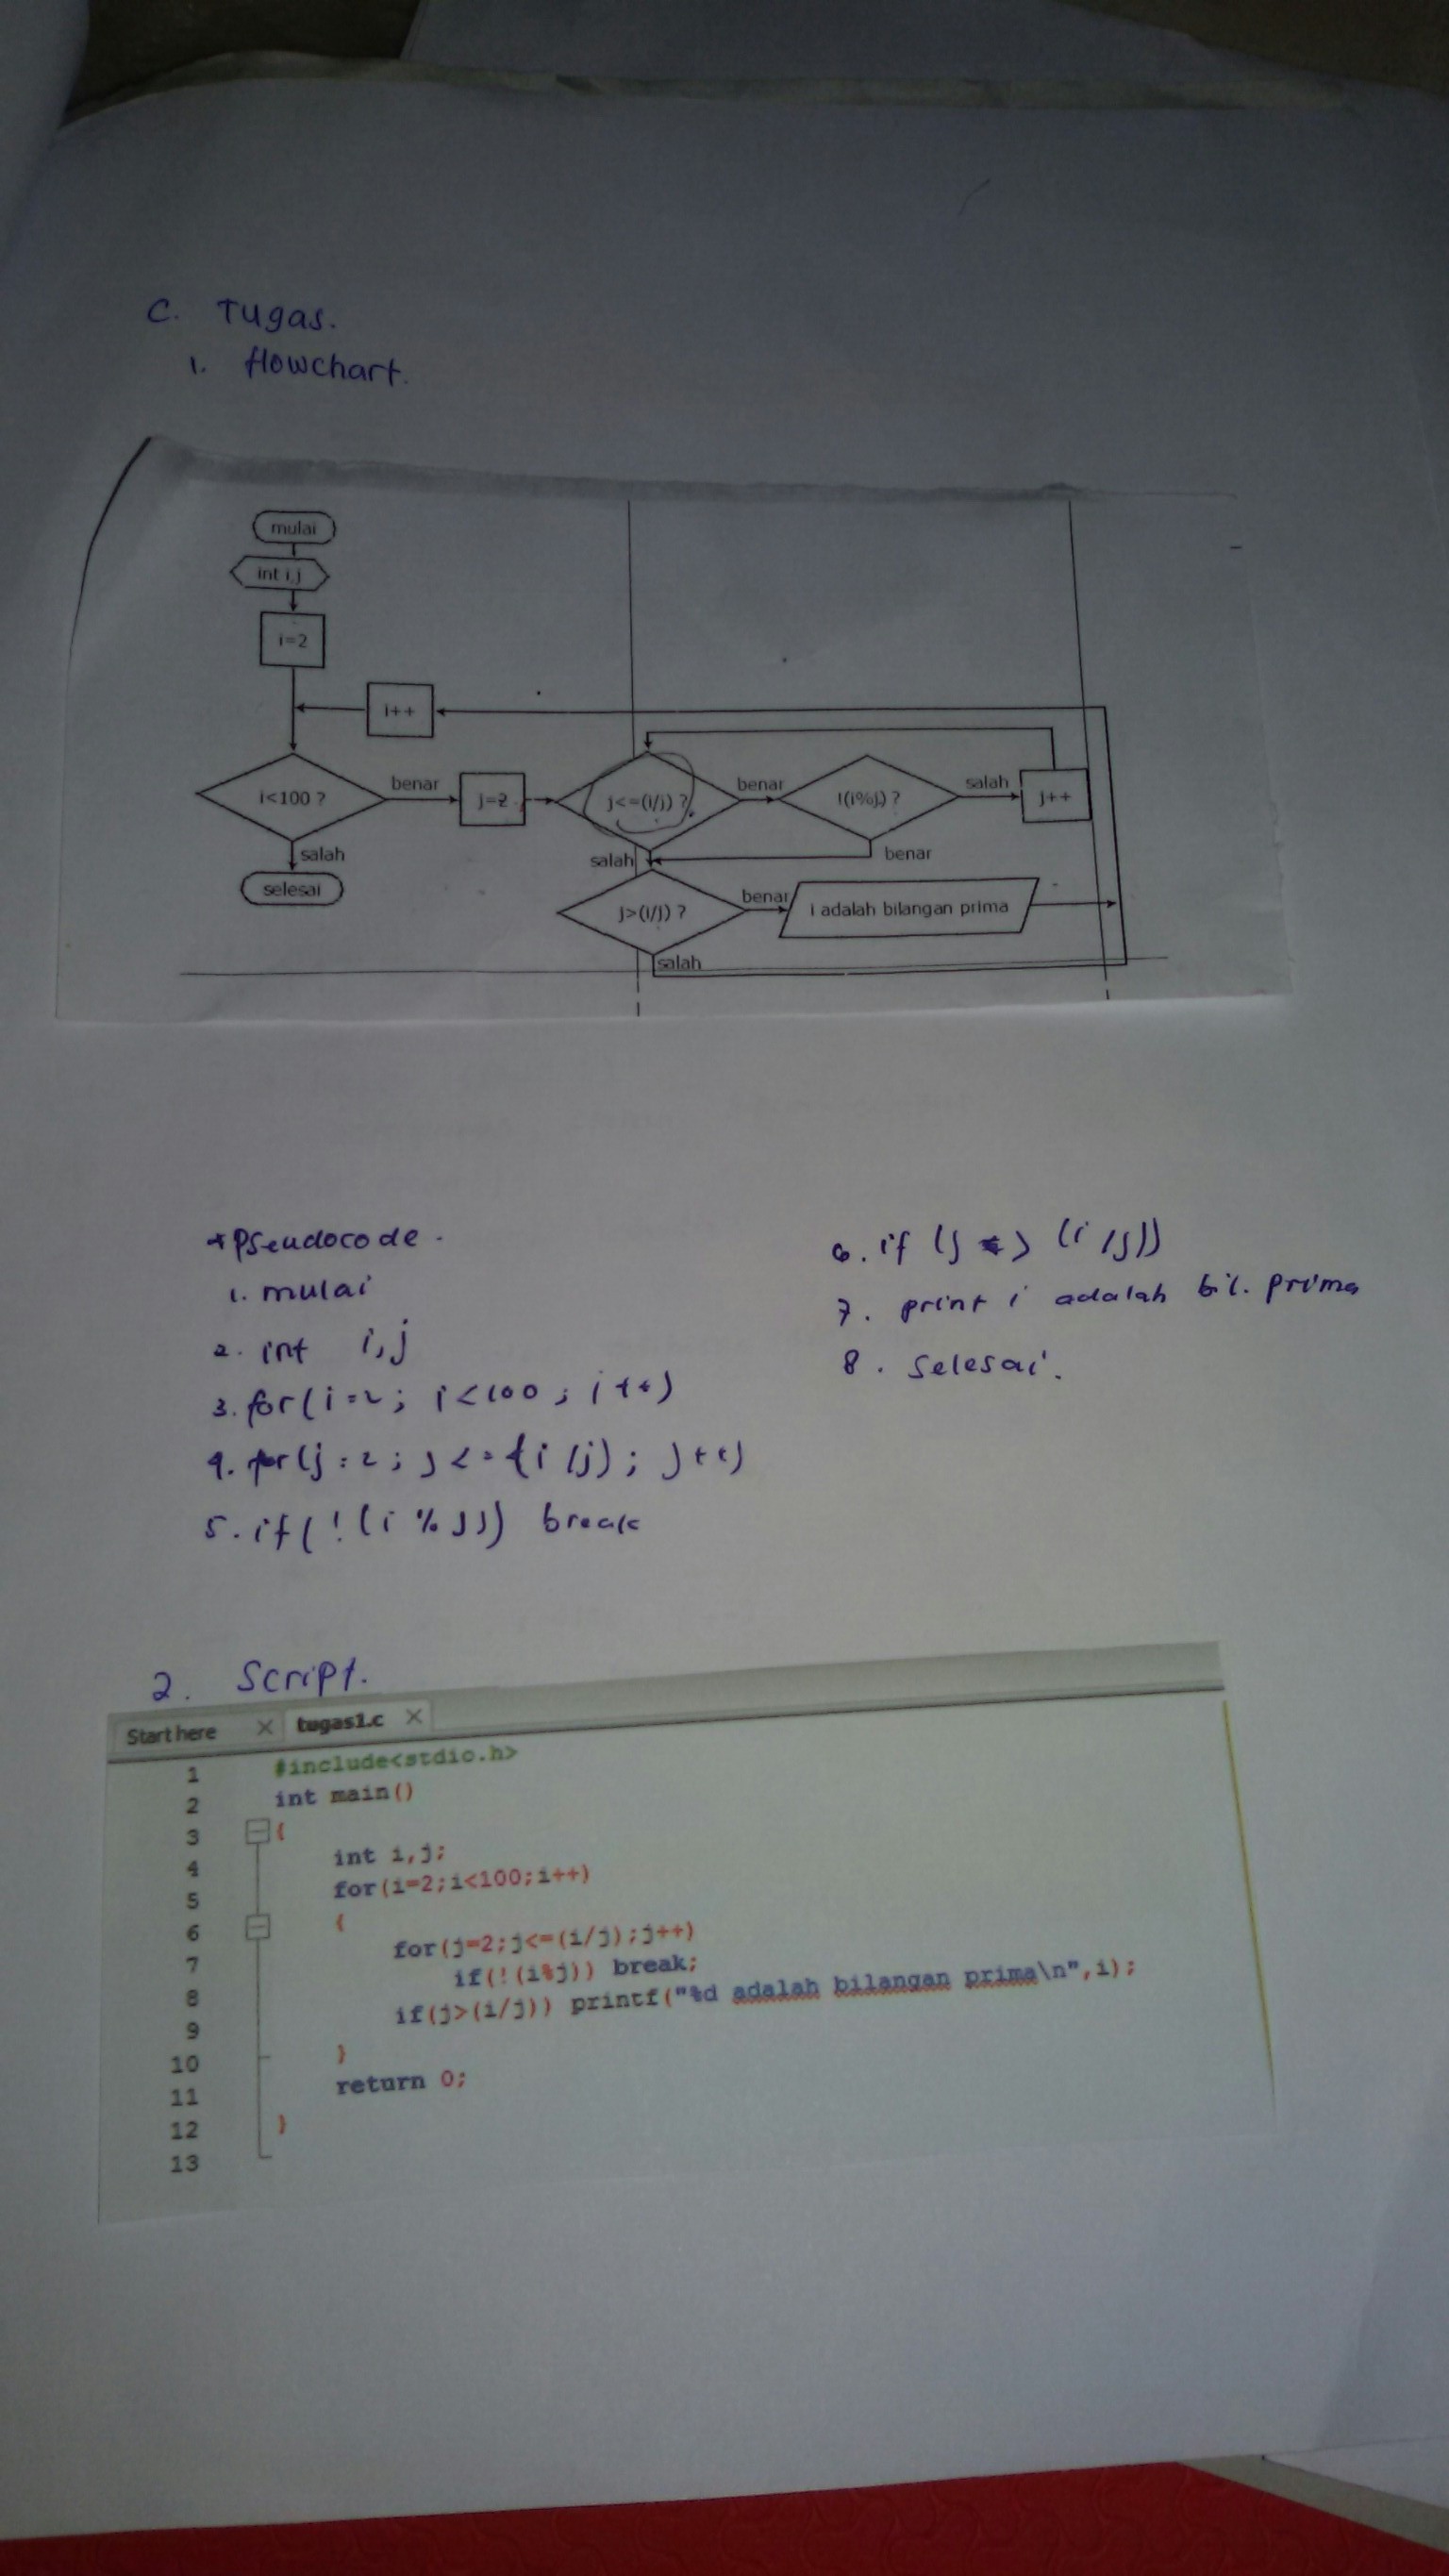 C. Tugas.
1. flowchart.
mulai
int i,j
i=2
i++
i<100 ?
benar
j=2
j<=(i/j) ?
benar
!(i%j) ?
salah
j++
salah
selesai
salah
benar
j>(i/j) ?
benar
i adalah bilangan prima
salah
*Pseudocode.
1. mulai
2. int i,j
3. for(i=2; i<100; i++)
4. for(j=2; j<=(i/j); j++)
5. if(!(i%j)) break
6. if (j > (i/j))
7. print i adalah bil. prima
8. selesai.
2. Script.
Start here tugas1.c
1 #include<stdio.h>
2 int main()
3 {
4 int i,j;
5 for(i=2;i<100;i++)
6 {
7 for(j=2;j<=(i/j);j++)
8 if(!(i%j)) break;
9 if(j>(i/j)) printf("%d adalah bilangan prima\n",i);
10 }
11 return 0;
12 }
13